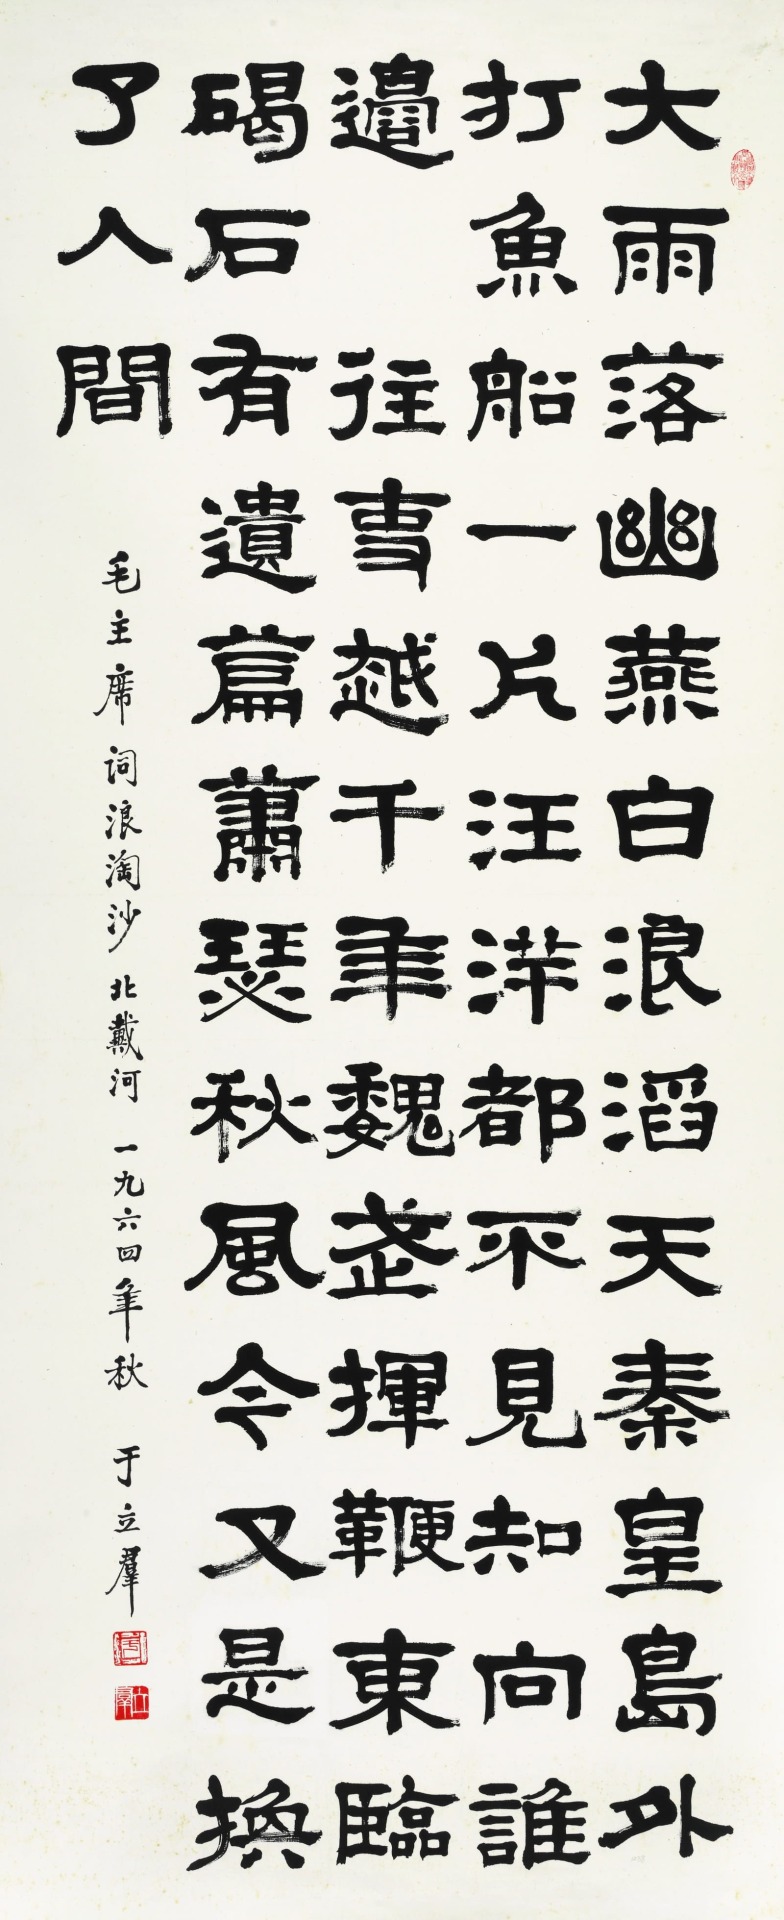 大雨落幽燕白浪滔天秦皇島外
打魚船一片汪洋都不見知向誰
邊 往事越千年魏武揮鞭東臨
碣石有遺篇蕭瑟秋風今又是換
了人間
毛主席詞浪淘沙 北戴河 一九六四年秋 于立羣
立羣